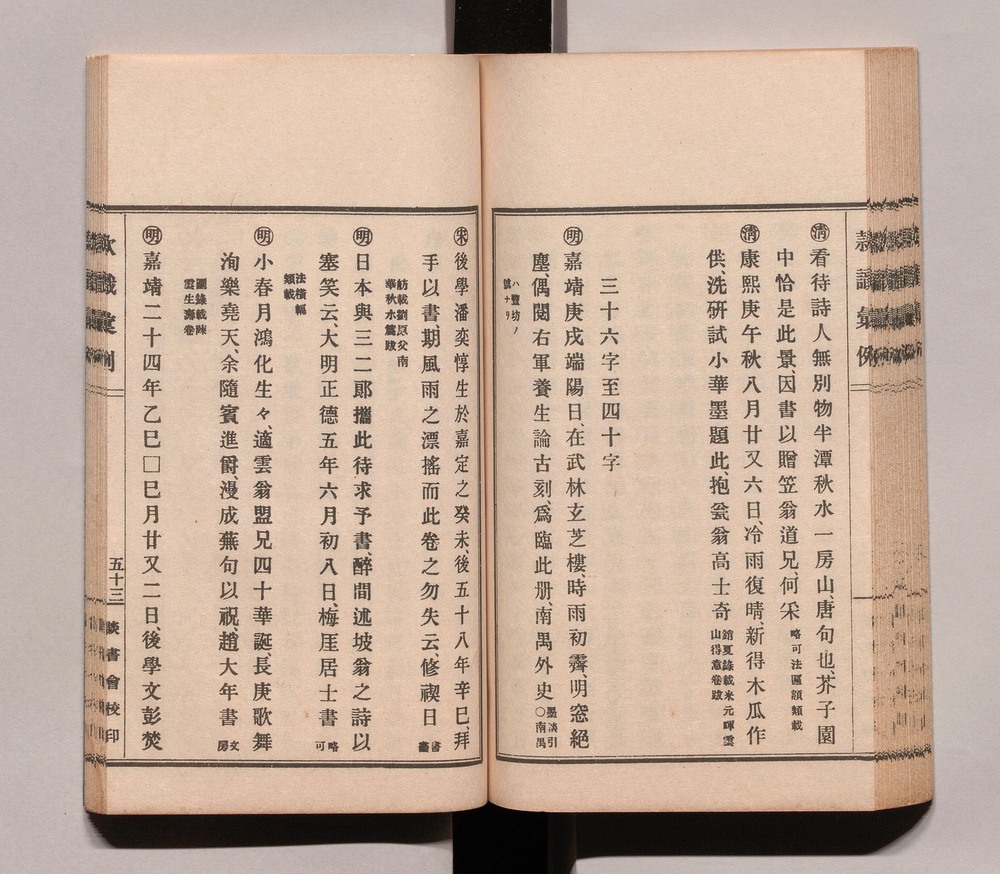 清 看待詩人無別物半潭秋水一房山、唐句也、芥子園
中恰是此景、因書以贈笠翁道兄、何采 略可法匾額類載
清 康熙庚午秋八月廿又六日、冷雨復晴、新得木瓜作
供、洗研試小華墨題此、抱瓮翁高士奇 錯夏錄載米元暉雲山得意卷跋
三十六字至四十字
明 嘉靖庚戌端陽日、在武林玄芝樓、時雨初霽、明窓絕
塵、偶閱右軍養生論古刻、爲臨此册、南禺外史 墨凑引〇南禺
ハ豐坊ノ
號ナリ
宋 後學潘奕惇生於嘉定之癸未、後五十八年辛巳、拜
手以書、期風雨之漂搖而此卷之勿失云、修禊日 書畫
舫載劉原父南
華秋水篇跋
明 日本與三二郞攜此待求予書、醉間述坡翁之詩以
塞笑云、大明正德五年六月初八日、梅厓居士書 略可
法橫幅
類載
明 小春月鴻化生々、適雲翁盟兄四十華誕、長庚歌舞
洵樂堯天、余隨賓進爵、漫成蕪句以祝、趙大年書 文房
圖錄載陸
雲生壽卷
明 嘉靖二十四年乙巳□巳月廿又二日、後學文彭焚
五十三
談書會校印